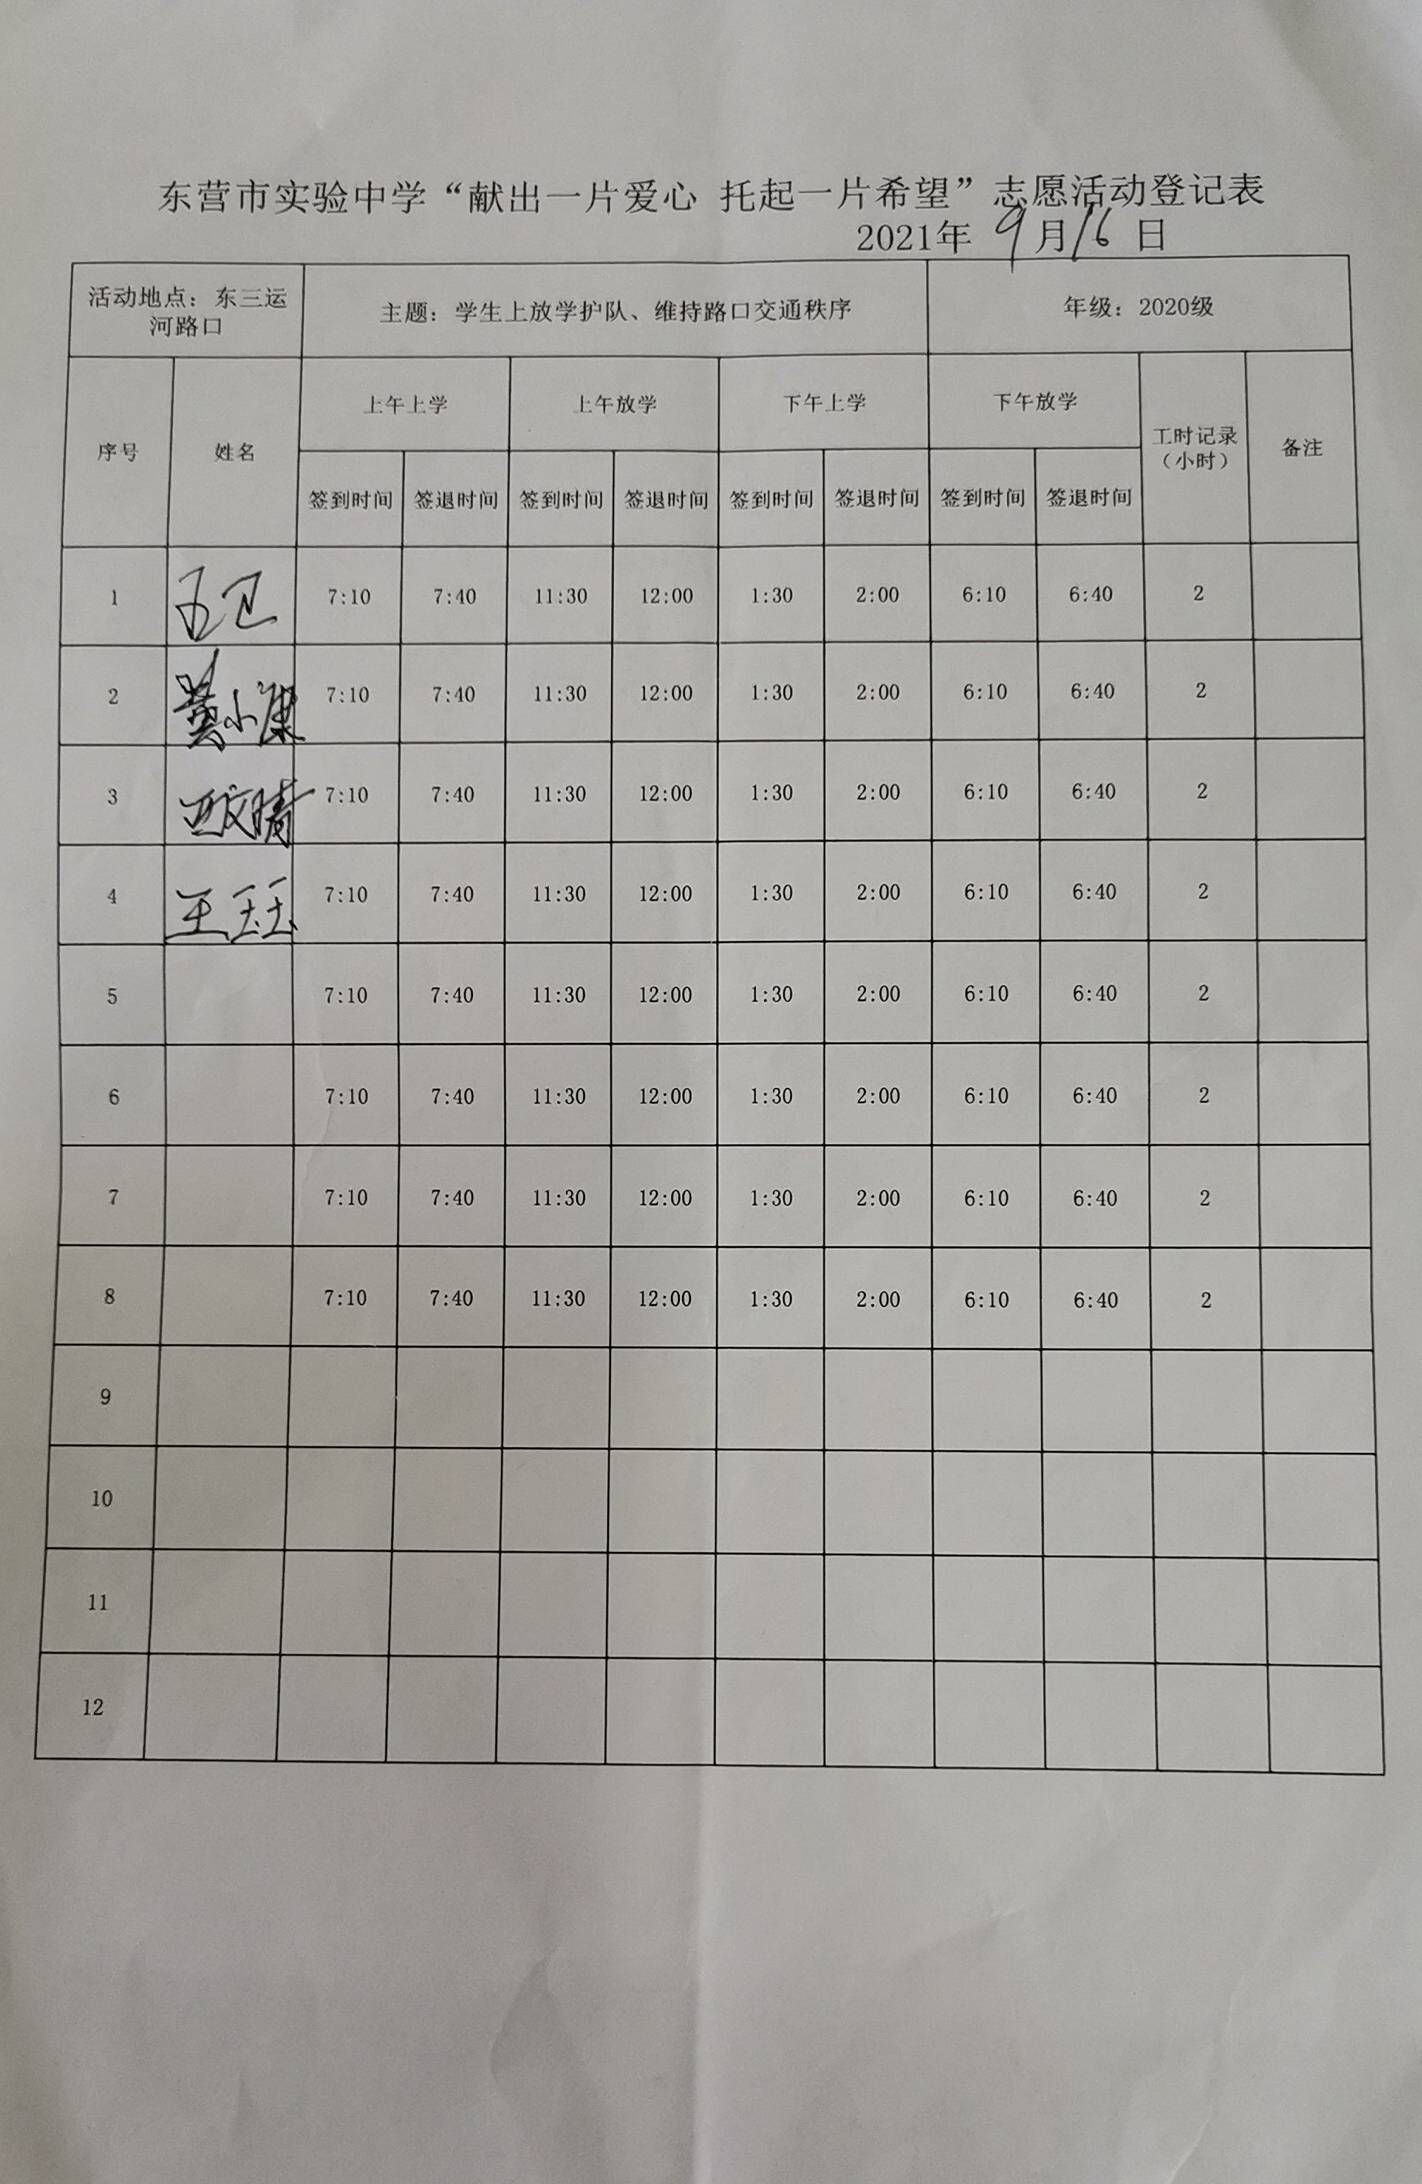 东营市实验中学“献出一片爱心 托起一片希望”志愿活动登记表
2021年 9月16日
活动地点：东三运河路口 主题：学生上放学护队、维持路口交通秩序 年级：2020级
序号 姓名 上午上学 上午放学 下午上学 下午放学 工时记录（小时） 备注
签到时间 签退时间 签到时间 签退时间 签到时间 签退时间 签到时间 签退时间
1 7:10 7:40 11:30 12:00 1:30 2:00 6:10 6:40 2
2 黄小康 7:10 7:40 11:30 12:00 1:30 2:00 6:10 6:40 2
3 文晴 7:10 7:40 11:30 12:00 1:30 2:00 6:10 6:40 2
4 王珏 7:10 7:40 11:30 12:00 1:30 2:00 6:10 6:40 2
5 7:10 7:40 11:30 12:00 1:30 2:00 6:10 6:40 2
6 7:10 7:40 11:30 12:00 1:30 2:00 6:10 6:40 2
7 7:10 7:40 11:30 12:00 1:30 2:00 6:10 6:40 2
8 7:10 7:40 11:30 12:00 1:30 2:00 6:10 6:40 2
9
10
11
12